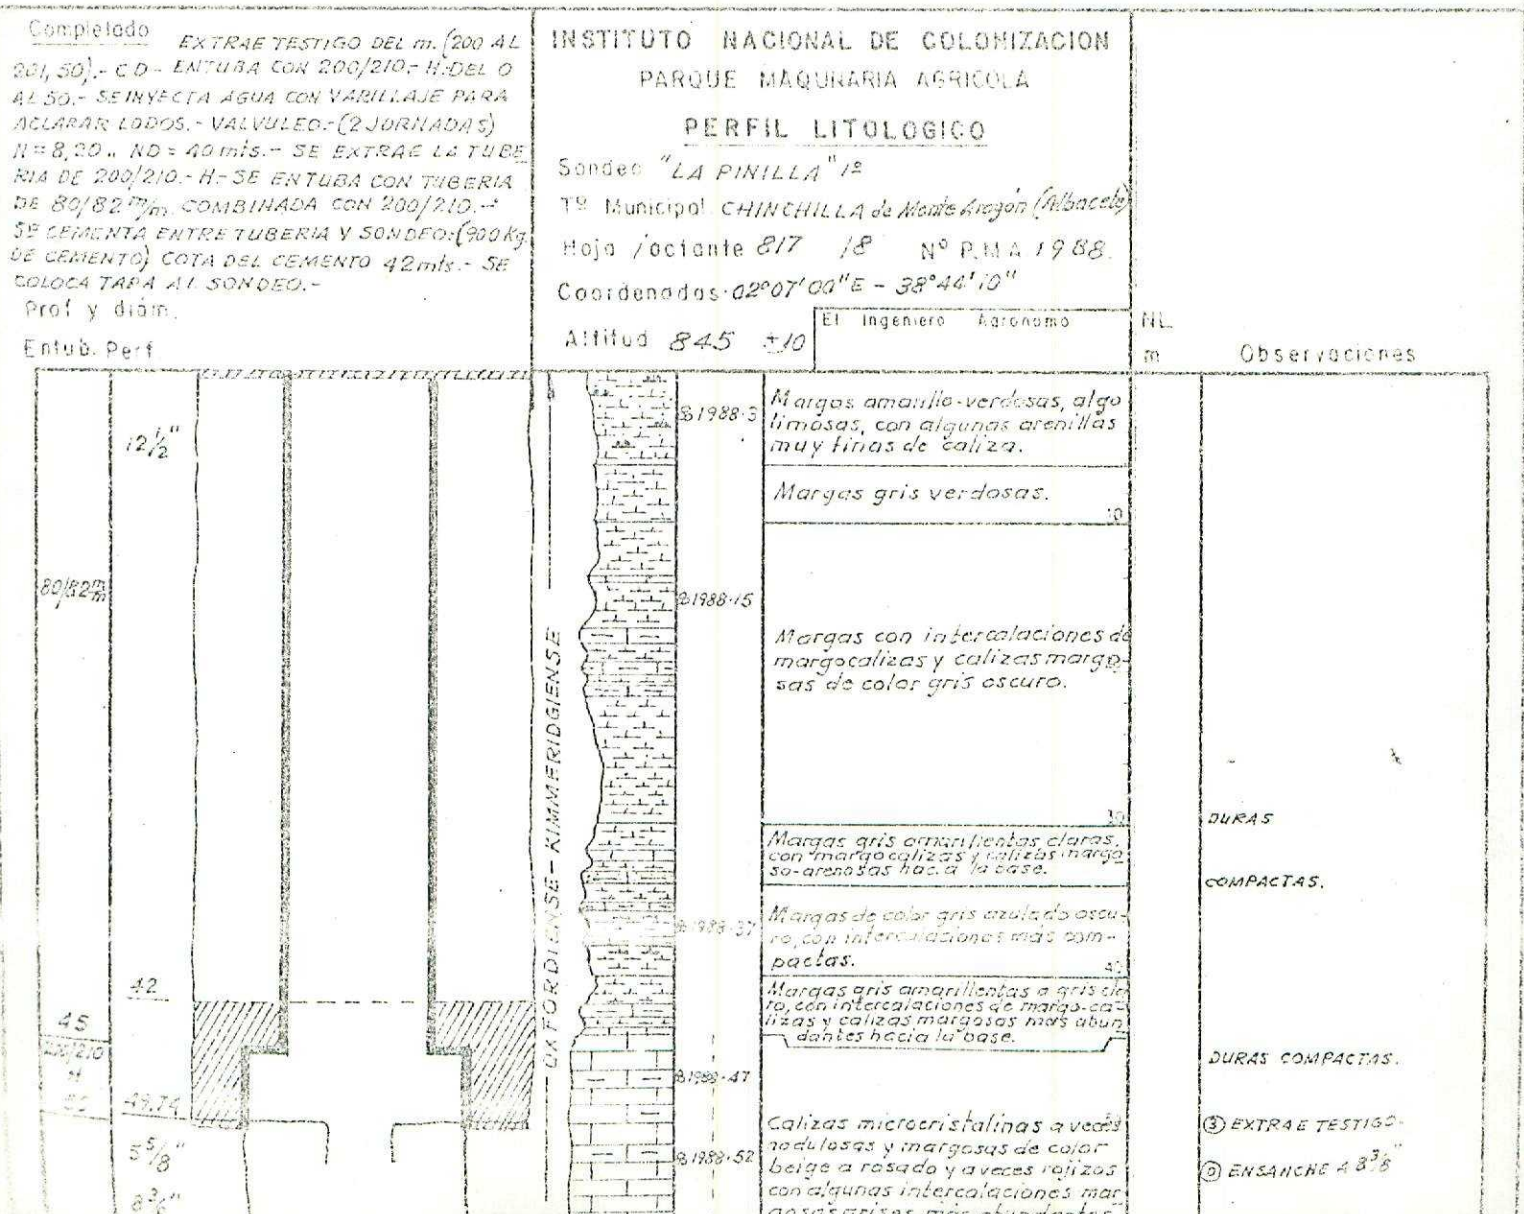 Completado
EXTRAE TESTIGO DEL m. (200 AL
201,50).- CD - ENTUBA CON 200/210.- H.- DEL 0
AL 50.- SE INYECTA AGUA CON VARILLAJE PARA
ACLARAR LODOS.- VALVULEO.- (2 JORNADAS)
N = 8,20 .. ND = 40 mts.- SE EXTRAE LA TUBE
RIA DE 200/210.- H.- SE ENTUBA CON TUBERIA
DE 80/82 m/m COMBINADA CON 200/210.-
SE CEMENTA ENTRE TUBERIA Y SONDEO: (900 Kg.
DE CEMENTO) COTA DEL CEMENTO 42 mts.- SE
COLOCA TAPA AL SONDEO.-
Prof y diám.
Entub. Perf
INSTITUTO NACIONAL DE COLONIZACION
PARQUE MAQUNARIA AGRICOLA
PERFIL LITOLOGICO
Sondeo "LA PINILLA" 1º
Tº Municipal CHINCHILLA de Monte Aragón (Albacete)
Hoja /octante 817 /8 Nº P.M.A 1988.
Coordenadas 02º07'00"E - 38º44'10"
Altitud 845 ±10
El Ingeniero Agronomo
NL
m
Observaciones
12 1/2"
80/82 m/m
42
45
200/210
H
49.74
5 5/8"
8 3/8"
OXFORDIENSE - KIMMERIDGIENSE
1988-3
1988-15
1988-37
1988-47
1988-52
Margas amarillo-verdosas, algo
limosas, con algunas arenillas
muy finas de caliza.
Margas gris verdosas.
10
Margas con intercalaciones de
margocalizas y calizas margo-
sas de color gris oscuro.
30
Margas gris amarillentas claras,
con margocalizas y calizas margo
so-arenosas hacia la base.
Margas de color gris azulado oscu-
ro, con intercalaciones más com-
pactas.
40
Margas gris amarillentas a gris cla
ro, con intercalaciones de margo-ca-
lizas y calizas margosas más abun
dantes hacia la base.
Calizas microcristalinas a veces
nodulosas y margosas de color
beige a rosado y a veces rojizos
con algunas intercalaciones mar
gosas grises más abundantes
DURAS
COMPACTAS.
DURAS COMPACTAS.
③ EXTRAE TESTIGO.
ENSANCHE A 8 3/8"